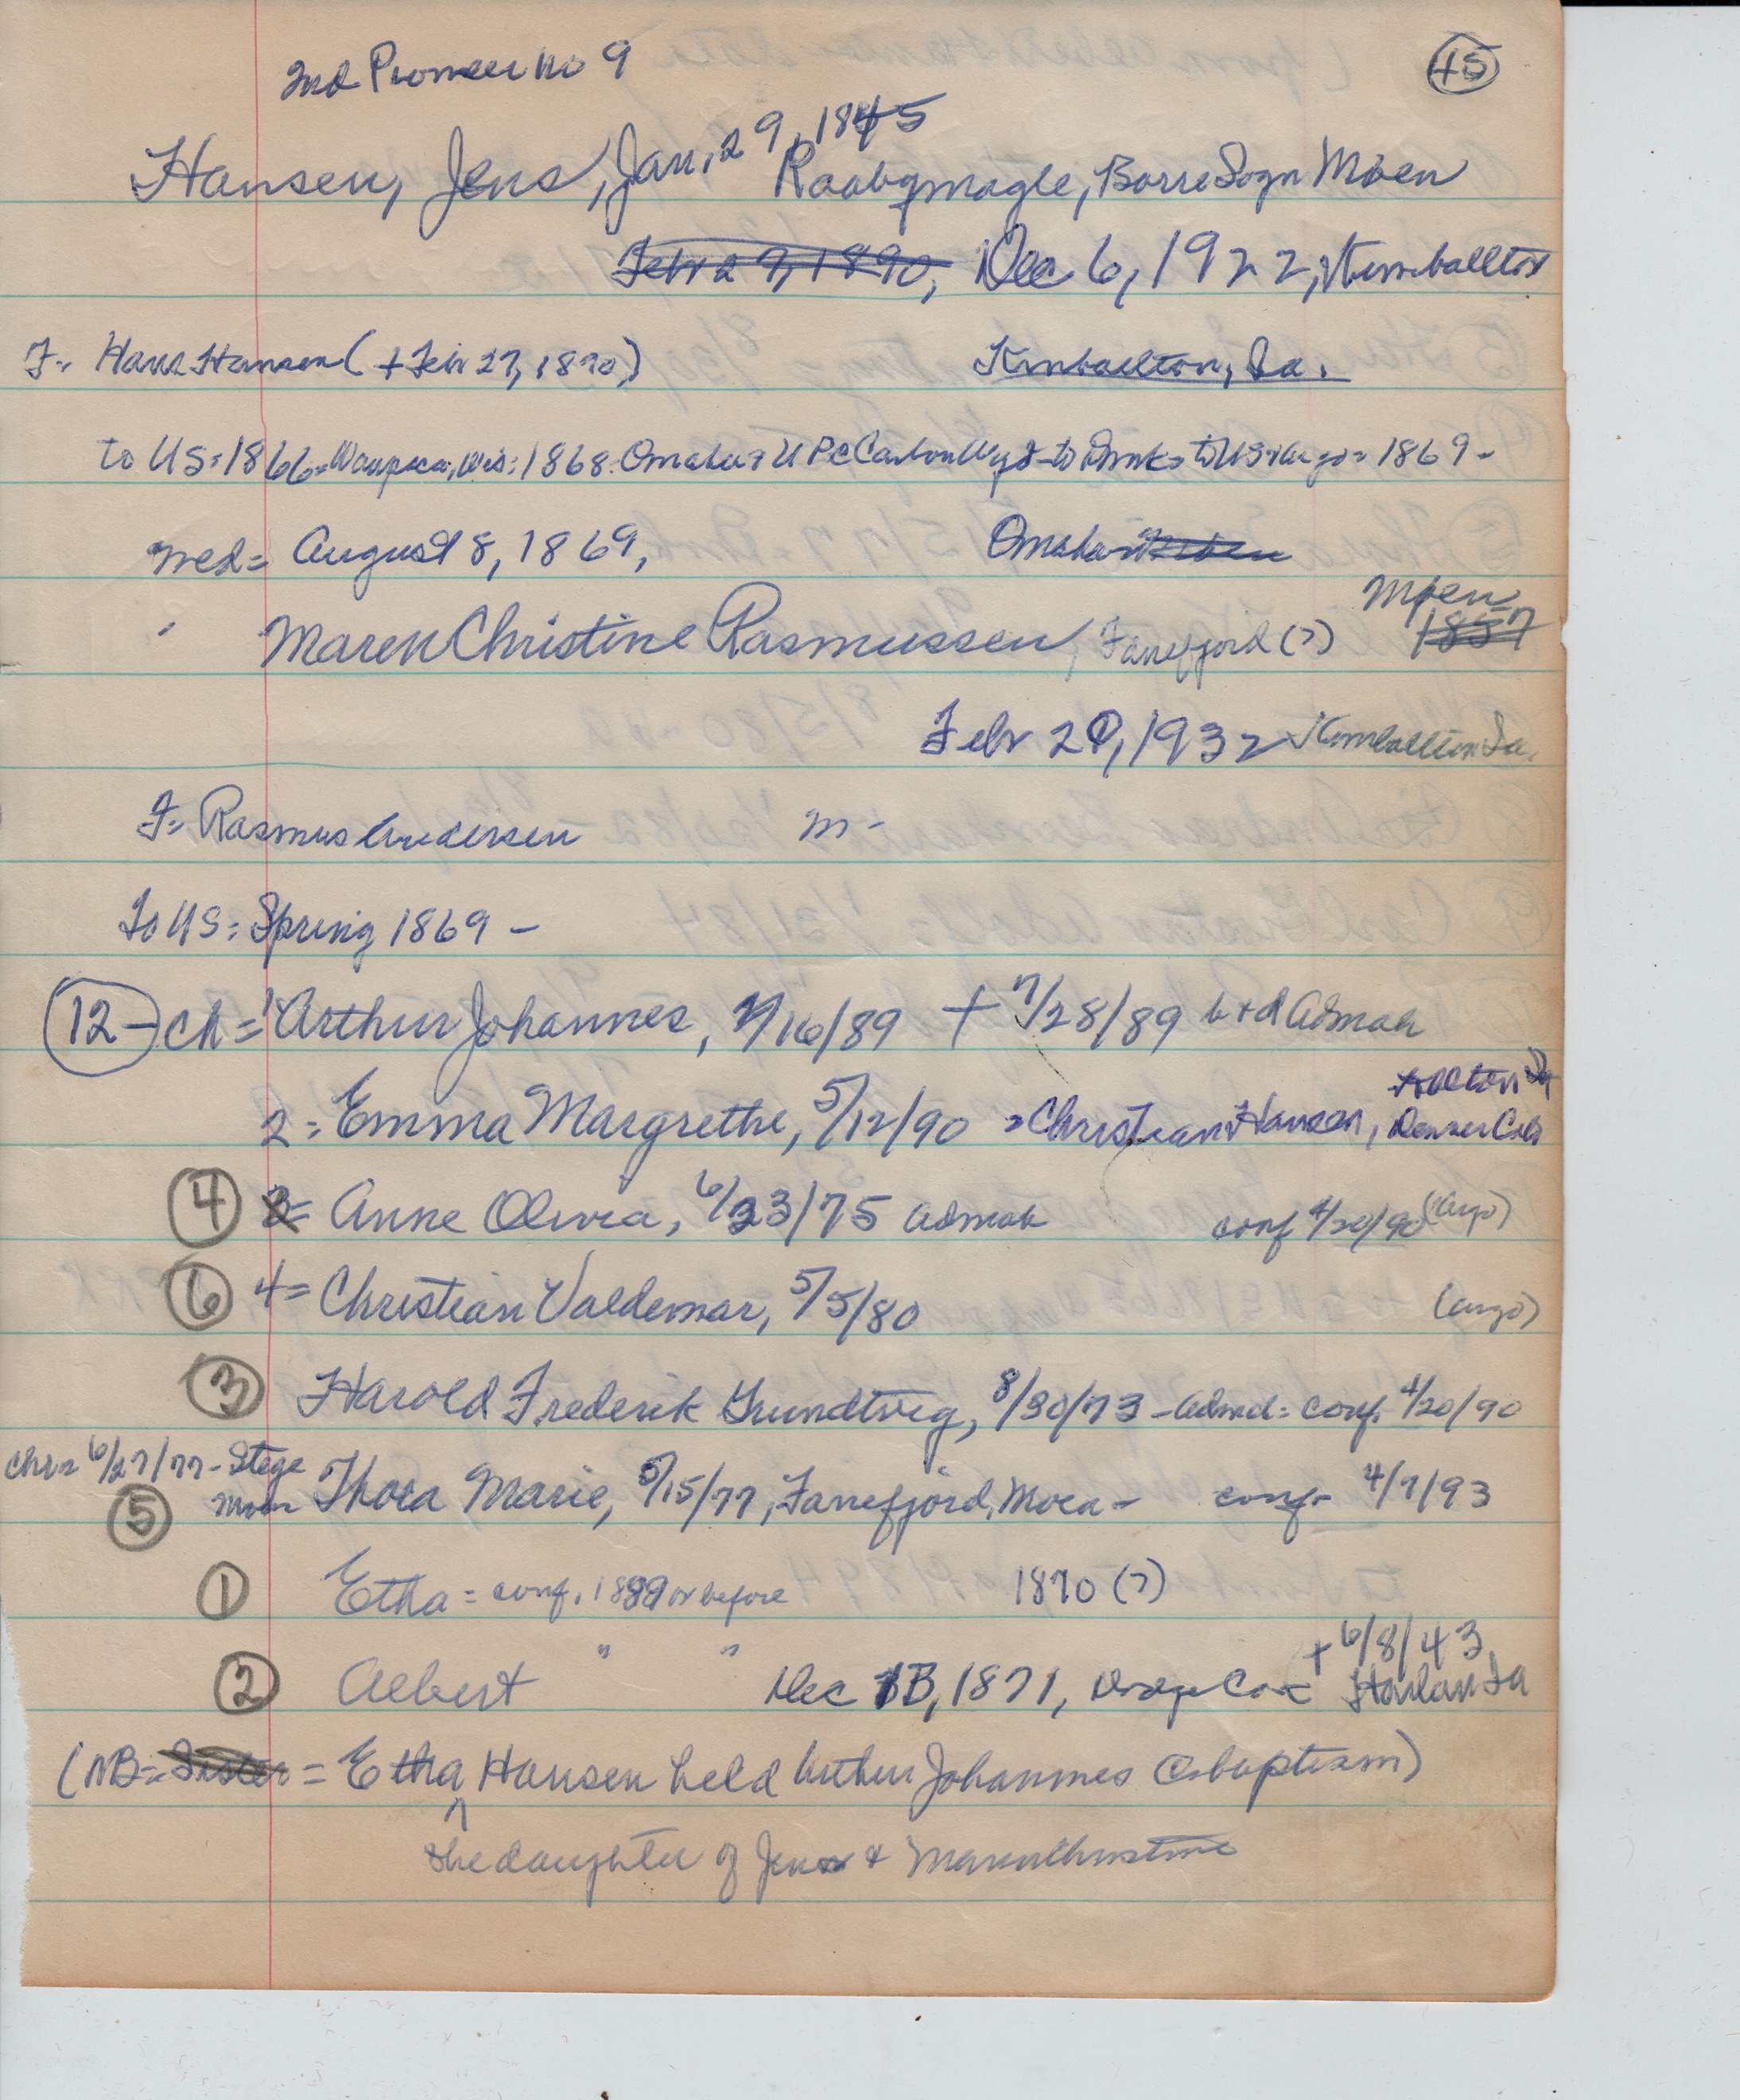 2nd Pioneer no 9
45
Hansen, Jens, Jan. 29, 1845 Raabymagle, Borre Sogn Möen
Febr 27, 1890, Dec 6, 1922, Kimballton
F= Hans Hansen (+ Febr 27, 1890) Kimballton, Ia.
to US: 1866= Waupaca, Wis: 1868. Omaha & U P C Carbon Wyo - to Dmk= to US= 1869-
wed= August 8, 1869, Omaha
Maren Christine Rasmussen, Fanefjord (?) Möen 1857
Febr 20, 1932 Kimballton Ia.
F= Rasmus Andersen m-
To US: Spring 1869 -
12- ch= 1 Arthur Johannes, 7/16/89 + 7/28/89 b+d Admah
2= Emma Margrethe, 5/12/90 = Christian Hansen, Denver Colo
4 3= Anne Olivia, 6/23/75 Admah conf 4/20/90 (Argo)
6 4= Christian Valdemar, 5/5/80 (Argo)
3 Harold Frederik Grundtvig, 8/30/73 - Admd= conf. 4/20/90
Chr= 6/27/77 - Stege
5 Moen Thora Marie, 5/15/77, Fanefjord, Moen - conf- 4/7/93
1 Etha = conf. 1889 or before 1870 (?)
+ 6/8/43
2 Albert " " Dec 1B, 1871, Dodge Co Harlan Ia
(NB= Sister = Etha Hansen held Arthur Johannes @ baptism)
^ the daughter of Jens & Maren Christine